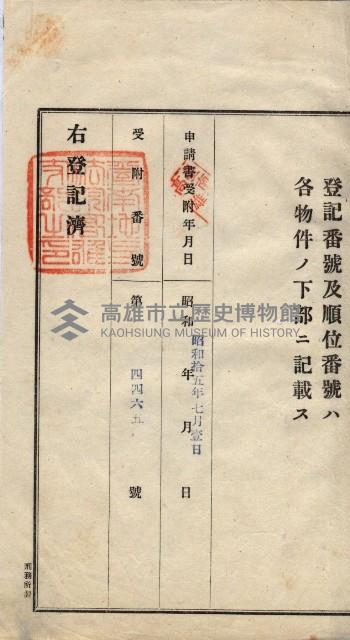 登記番號及順位番號ハ
各物件ノ下部ニ記載ス
申請書受附年月日
昭和 年 月 日
昭和拾五年七月壹日
受附番號
第 號
四四六五
右登記濟
高雄市立歷史博物館
KAOHSIUNG MUSEUM OF HISTORY